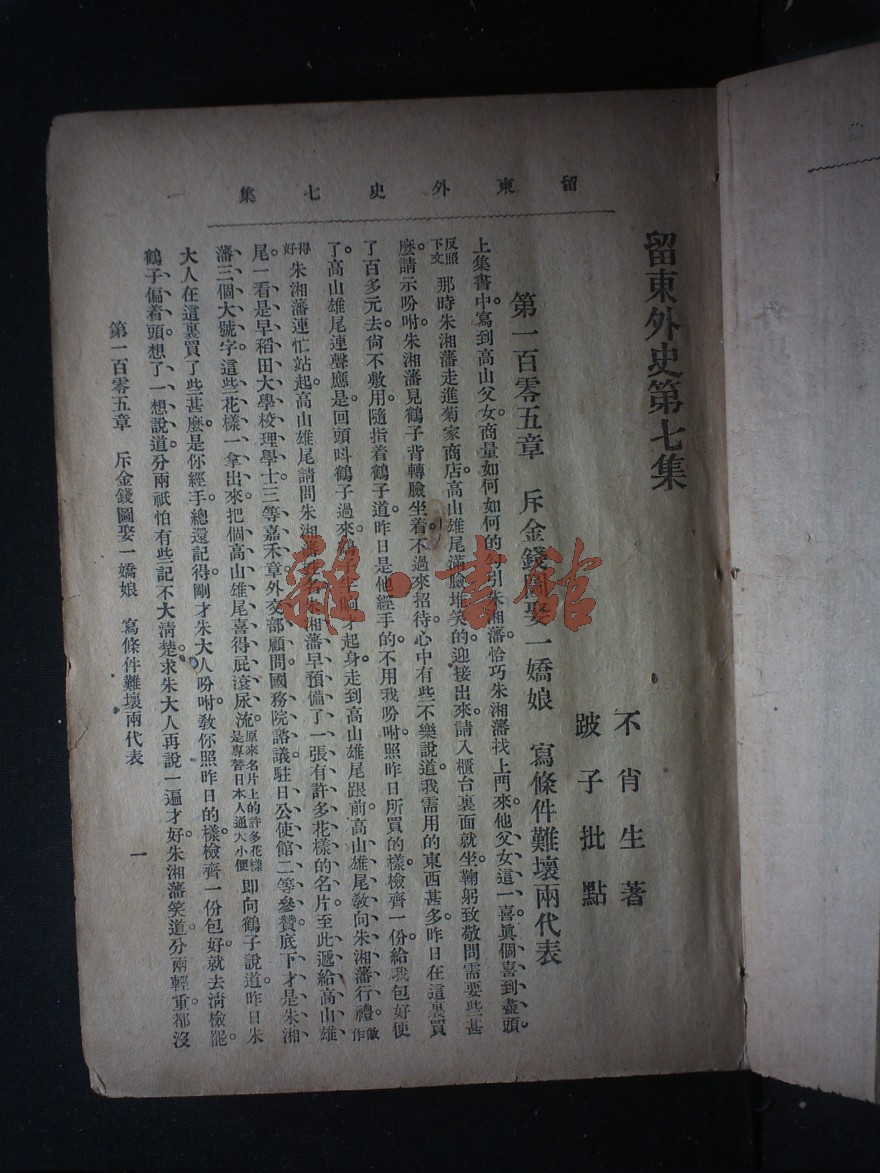 留東外史第七集
不肖生著
跛子批點
留東外史七集
第一百零五章　斥金錢圖娶一嬌娘　寫條件難壞兩代表
上集書中。寫到高山父女、商量如何如何的勾引朱湘藩。恰巧朱湘藩找上門來。他父女這一喜、眞個喜到盡頭。
反照下文　那時朱湘藩走進菊家商店。高山雄尾滿臉堆笑的、迎接出來。請入櫃台裏面就坐。鞠躬致敬、問需要些甚
麼。請示吩咐。朱湘藩見鶴子背轉臉坐着。不過來招待。心中有些不樂。說道。我需用的東西甚多。昨日在這裏買
了百多元去。尙不敷用。隨指着鶴子道。昨日是他經手的。不用我吩咐。照昨日所買的樣、檢齊一份給我包好便
了。高山雄尾連聲應是。回頭呌鶴子過來。鶴子半晌才起身走到高山雄尾跟前。高山雄尾敎向朱湘藩行禮。做作
得好　朱湘藩連忙站起。高山雄尾請問朱湘藩姓名。朱湘藩早預備了一張有許多花樣的名片、至此遞給高山雄
尾。一看是早稻田大學校理學士、三等嘉禾章、外交部顧問、國務院諮議、駐日公使館二等參贊。底下才是朱湘
藩三個大號字。這些花樣一拿出來、把個高山雄尾喜得屁滾尿流。原來名片上的許多花樣是專替日本人通大小便　卽向鶴子說道。昨日朱
大人在這裏買了些甚麼。是你經手、總還記得。剛才朱大人吩咐、敎你照昨日的樣、檢齊一份包好。就去淸檢罷。
鶴子偏着頭想了一想、說道。分兩祇怕有些記不大淸楚。求朱大人再說一遍才好。朱湘藩笑道。分兩輕重都沒
第一百零五章　斥金錢圖娶一嬌娘　寫條件難壞兩代表
一
雜·書館